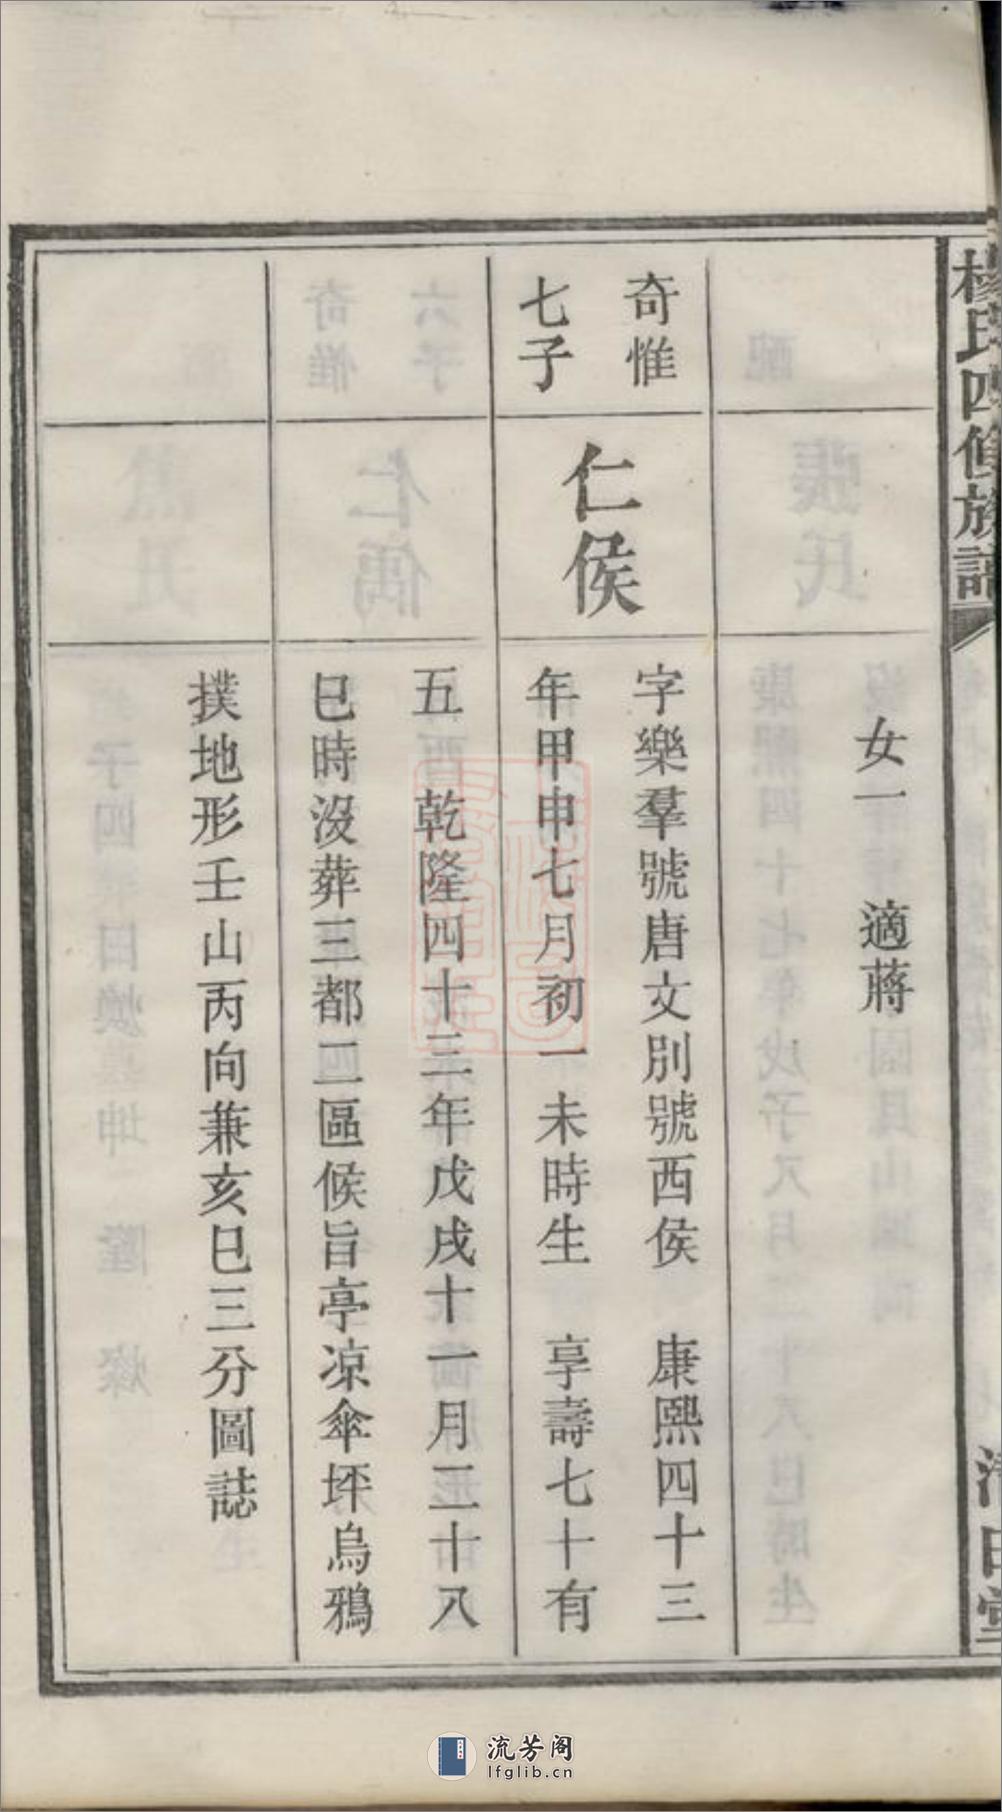 楊氏四修族譜
清白堂
女一　適蔣
奇惟
七子
仁侯
字樂羣號唐文別號西侯　康熙四十三
年甲申七月初一未時生　享壽七十有
五　乾隆四十三年戊戌十一月二十八
巳時沒葬三都二區候旨亭凉傘坪烏鴉
撲地形壬山丙向兼亥巳三分圖誌
流芳阁
lfglib.cn